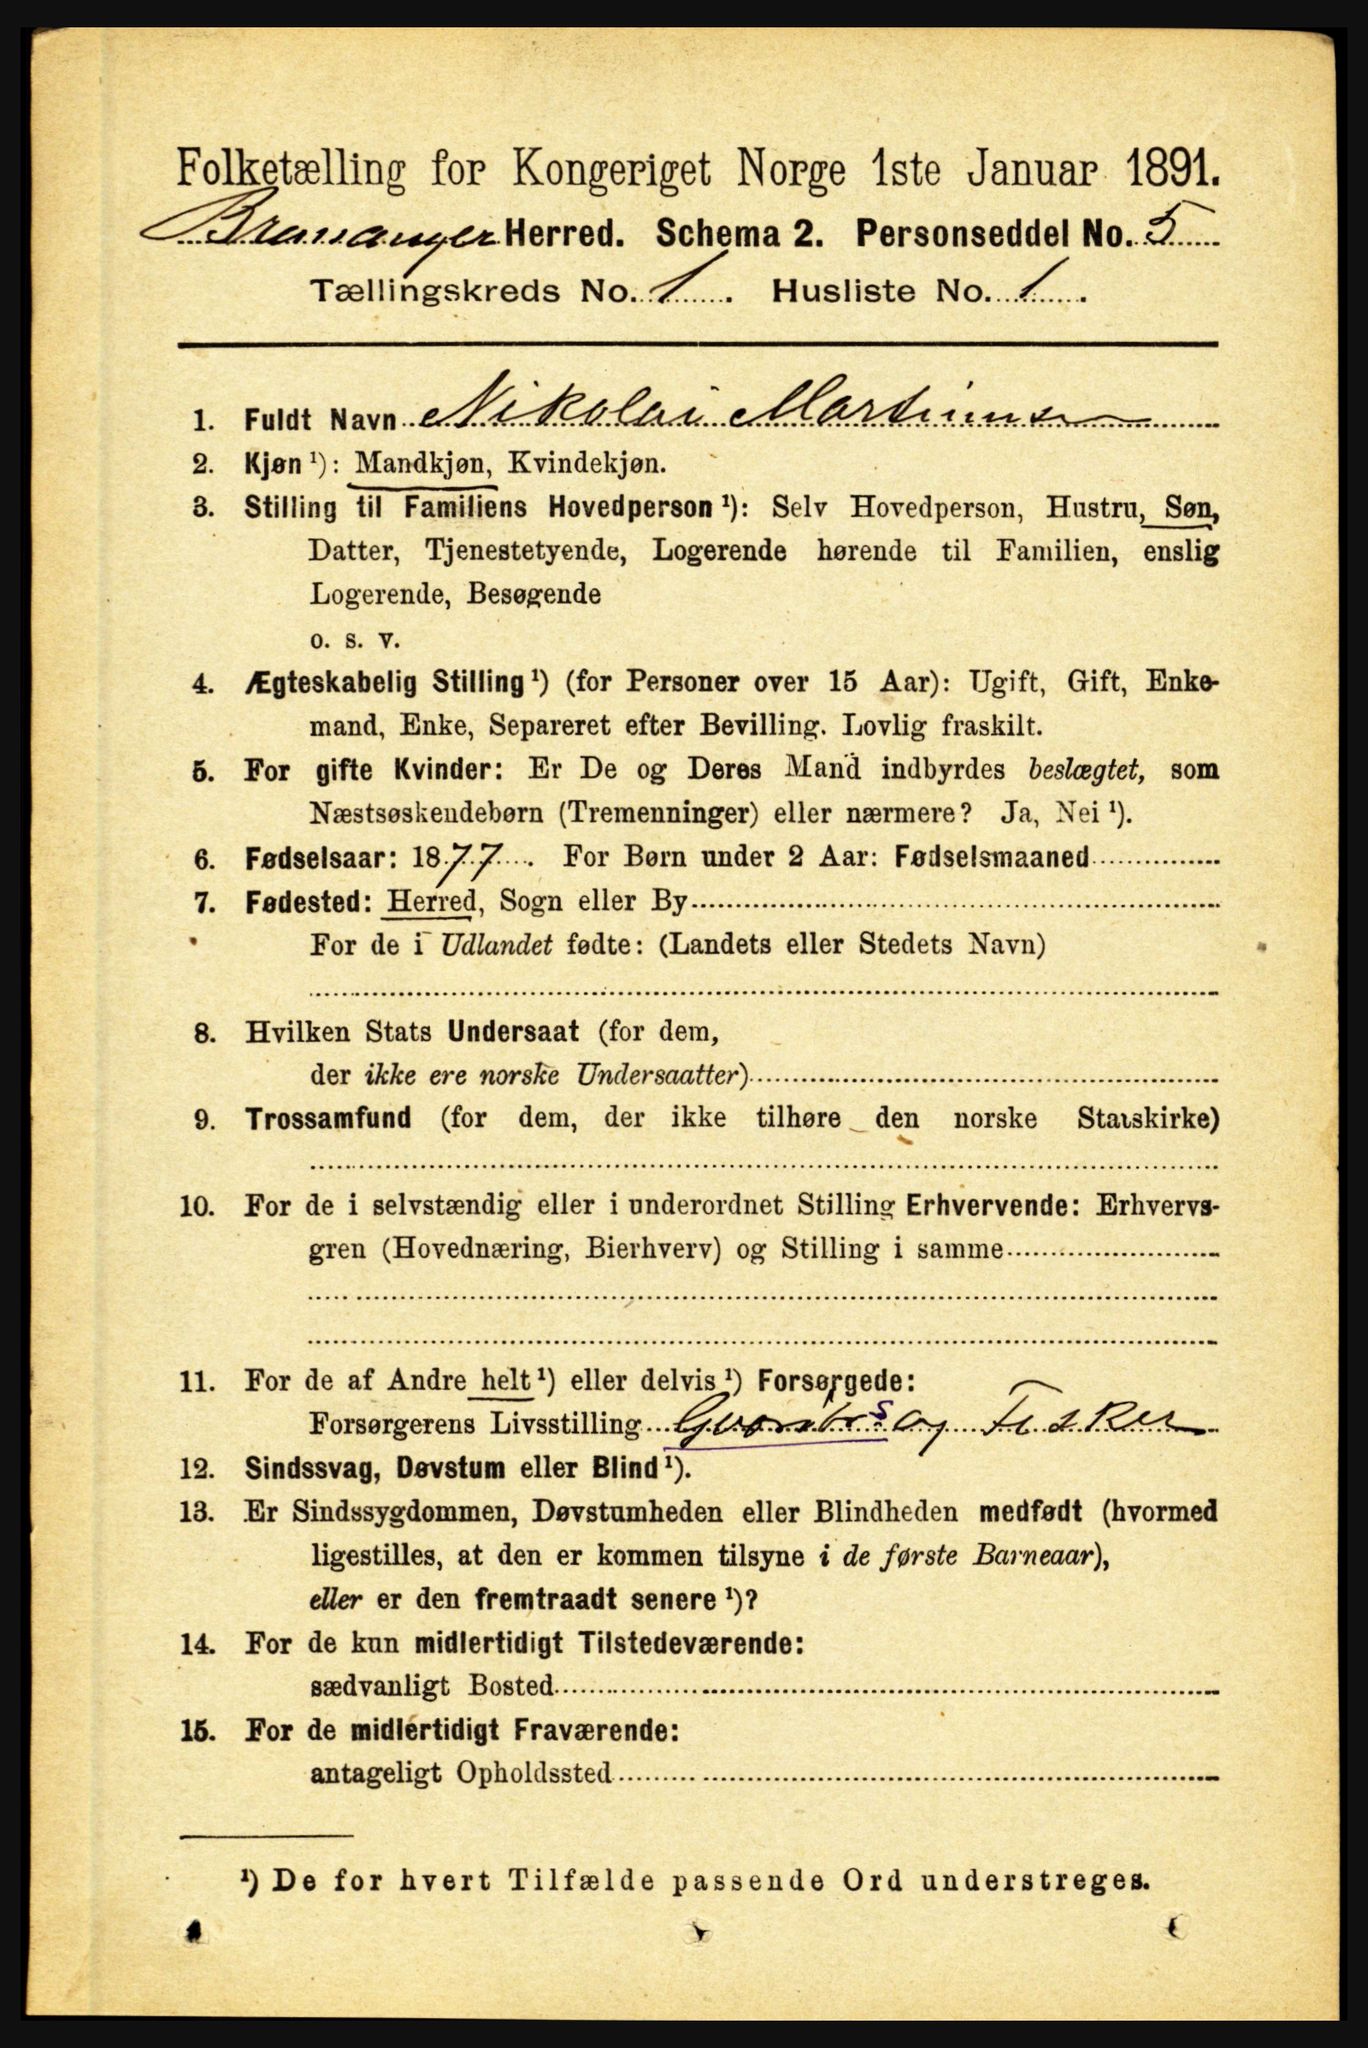 Folketælling for Kongeriget Norge 1ste Januar 1891.
Bremanger Herred. Schema 2. Personseddel No. 5
Tællingskreds No. 1. Husliste No. 1.
1. Fuldt Navn Nikolai Martinus
2. Kjøn ¹): Mandkjøn, Kvindekjøn.
3. Stilling til Familiens Hovedperson ¹): Selv Hovedperson, Hustru, Søn,
Datter, Tjenestetyende, Logerende hørende til Familien, enslig
Logerende, Besøgende
o. s. v.
4. Ægteskabelig Stilling ¹) (for Personer over 15 Aar): Ugift, Gift, Enke-
mand, Enke, Separeret efter Bevilling. Lovlig fraskilt.
5. For gifte Kvinder: Er De og Deres Mand indbyrdes beslægtet, som
Næstsøskendebørn (Tremenninger) eller nærmere? Ja, Nei ¹).
6. Fødselsaar: 1877. For Børn under 2 Aar: Fødselsmaaned
7. Fødested: Herred, Sogn eller By
For de i Udlandet fødte: (Landets eller Stedets Navn)
8. Hvilken Stats Undersaat (for dem,
der ikke ere norske Undersaatter)
9. Trossamfund (for dem, der ikke tilhøre den norske Statskirke)
10. For de i selvstændig eller i underordnet Stilling Erhvervende: Erhvervs-
gren (Hovednæring, Bierhverv) og Stilling i samme
11. For de af Andre helt ¹) eller delvis ¹) Forsørgede:
Forsørgerens Livsstilling og Fisker
12. Sindssvag, Døvstum eller Blind ¹).
13. Er Sindssygdommen, Døvstumheden eller Blindheden medfødt (hvormed
ligestilles, at den er kommen tilsyne i de første Barneaar),
eller er den fremtraadt senere ¹)?
14. For de kun midlertidigt Tilstedeværende:
sædvanligt Bosted
15. For de midlertidigt Fraværende:
antageligt Opholdssted
¹) De for hvert Tilfælde passende Ord understreges.